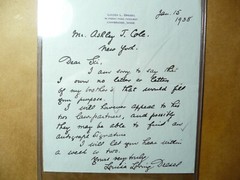 Jan. 15
1935
Mr. Ashley T. Cole.
New York.
Dear Sir.
I am sorry to say that
I own no letter or letters
of my mother's that would fit
your purpose.
I will however appeal to his
two law partners, and possibly
they may be able to find an
autograph signature
I will let you hear within
a week or two.
Yours very truly.